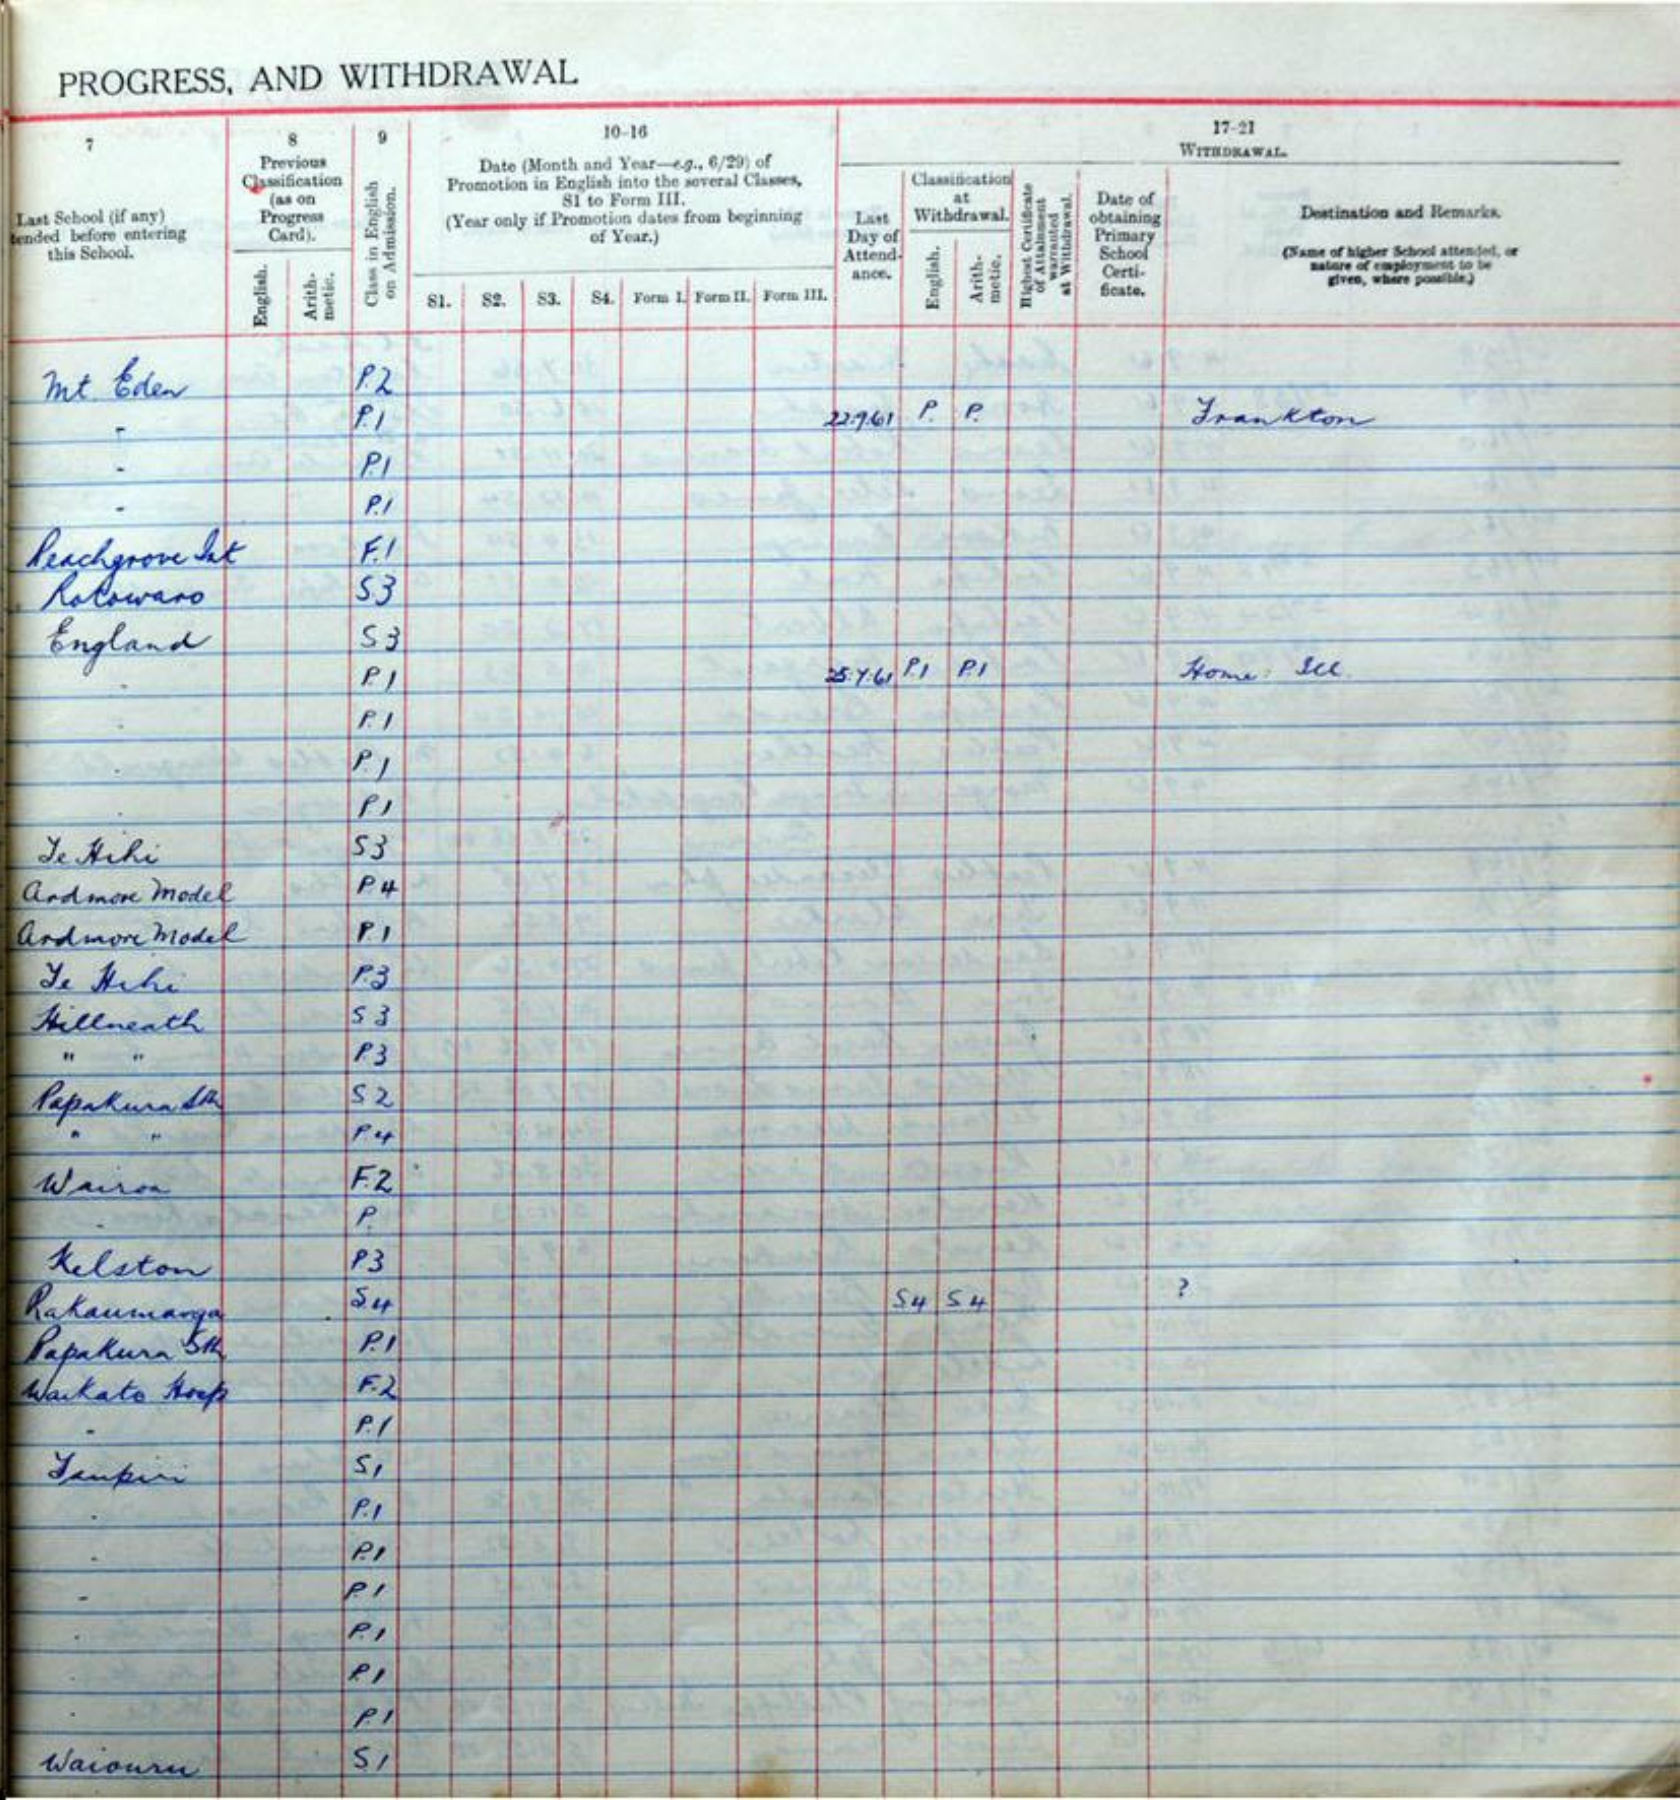 PROGRESS, AND WITHDRAWAL
7
Last School (if any)
tended before entering
this School.
8
Previous
Classification
(as on
Progress
Card).
English.
Arith-
metic.
9
Class in English
on Admission.
10-16
Date (Month and Year—e.g., 6/29) of
Promotion in English into the several Classes,
S1 to Form III.
(Year only if Promotion dates from beginning
of Year.)
S1. S2. S3. S4. Form I. Form II. Form III.
17-21
WITHDRAWAL.
Last
Day of
Attend-
ance.
Classification
at
Withdrawal.
English.
Arith-
metic.
Highest Certificate
of Attainment
warranted
at Withdrawal.
Date of
obtaining
Primary
School
Certi-
ficate.
Destination and Remarks.
(Name of higher School attended, or
nature of employment to be
given, where possible.)
Mt Eden P.2
- P.1 22.9.61 P. P. Frankton
- P.1
- P.1
Peachgrove Int F.1
Rotowaro S3
England S3
- P.1 P.1 P.1 Home: Ill.
P.1
- P.1
- P.1
Te Hihi S3
Ardmore Model P.4
Ardmore Model P.1
Te Hihi P.3
Hillneath S3
" " P.3
Papakura Sth S2
" " P.4
Wairoa F.2
- P.
Kelston P3
Rakaumanga S4 S4 S4 ?
Papakura Sth P.1
Waikato Hosp F.2
- P.1
Taupiri S1
- P.1
- P.1
- P.1
- P.1
- P.1
- P.1
Waiouru S.1